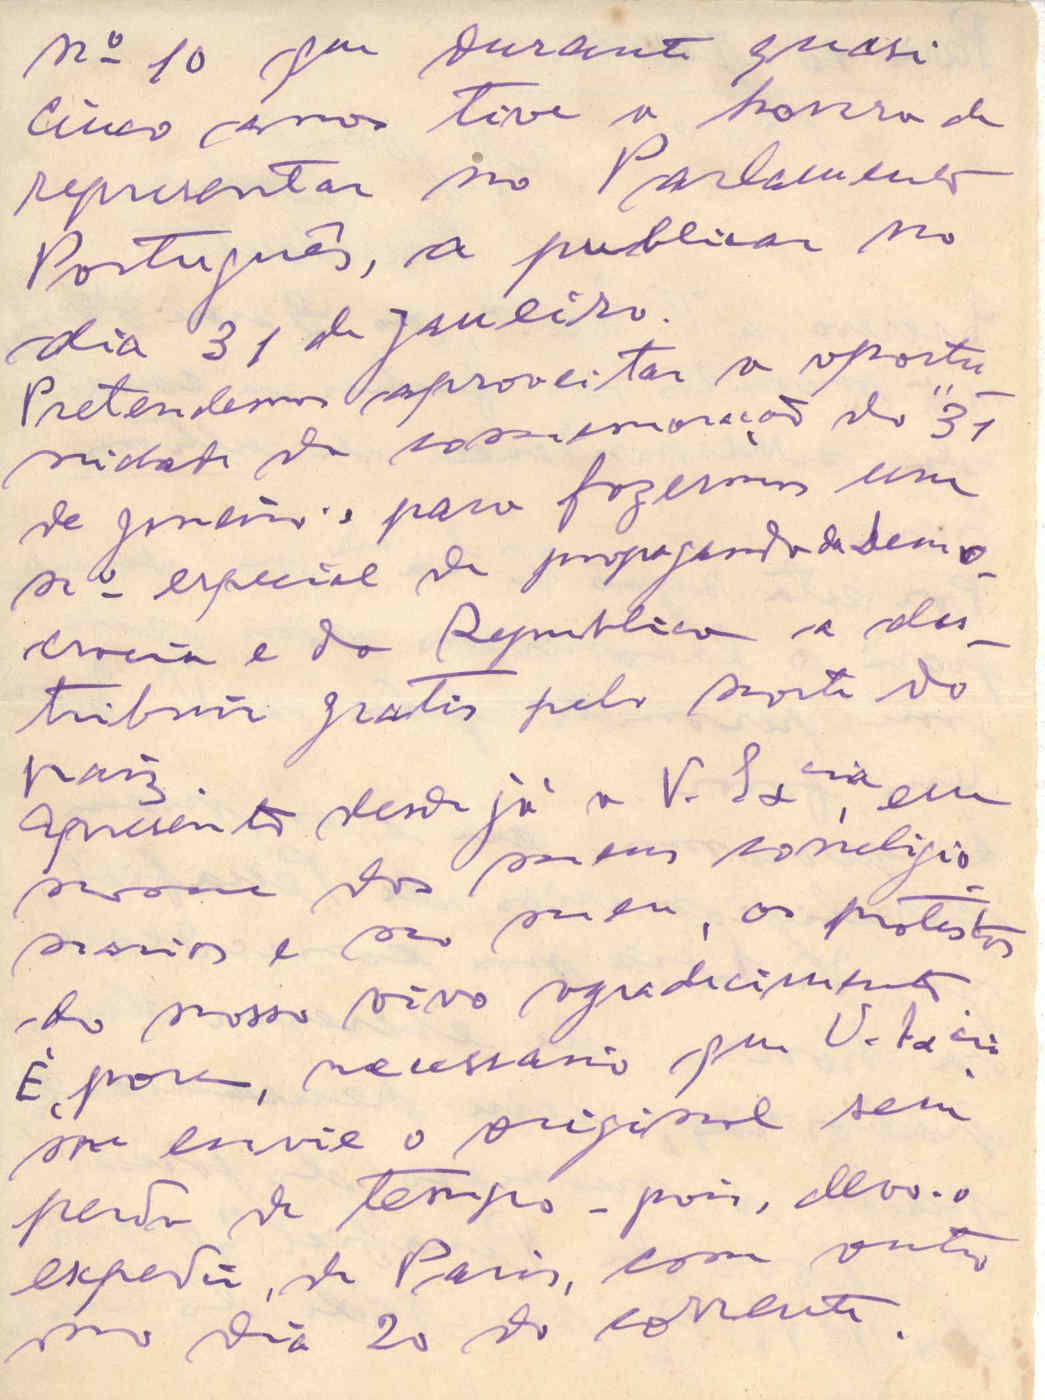 nº 10 que durante quasi
cinco annos tive a honra de
representar no Parlamento
Português, a publicar no
dia 31 de janeiro.
Pretendemos aproveitar a oportu
nidade da comemoração do "31
de janeiro" para fazermos um
nº especial de propaganda da Demo-
cracia e da Republica a des-
tribuir gratis pelo norte do
paiz.
Apresento desde já a V. Exª cia, em
nome dos meus correligio
narios e no meu, os protestos
do nosso vivo agradecimento
É, porem, necessario que V. Ex cia
me envie o original sem
perda de tempo - pois, devo-o
expedir, de Paris, com outro
no dia 20 do corrente.